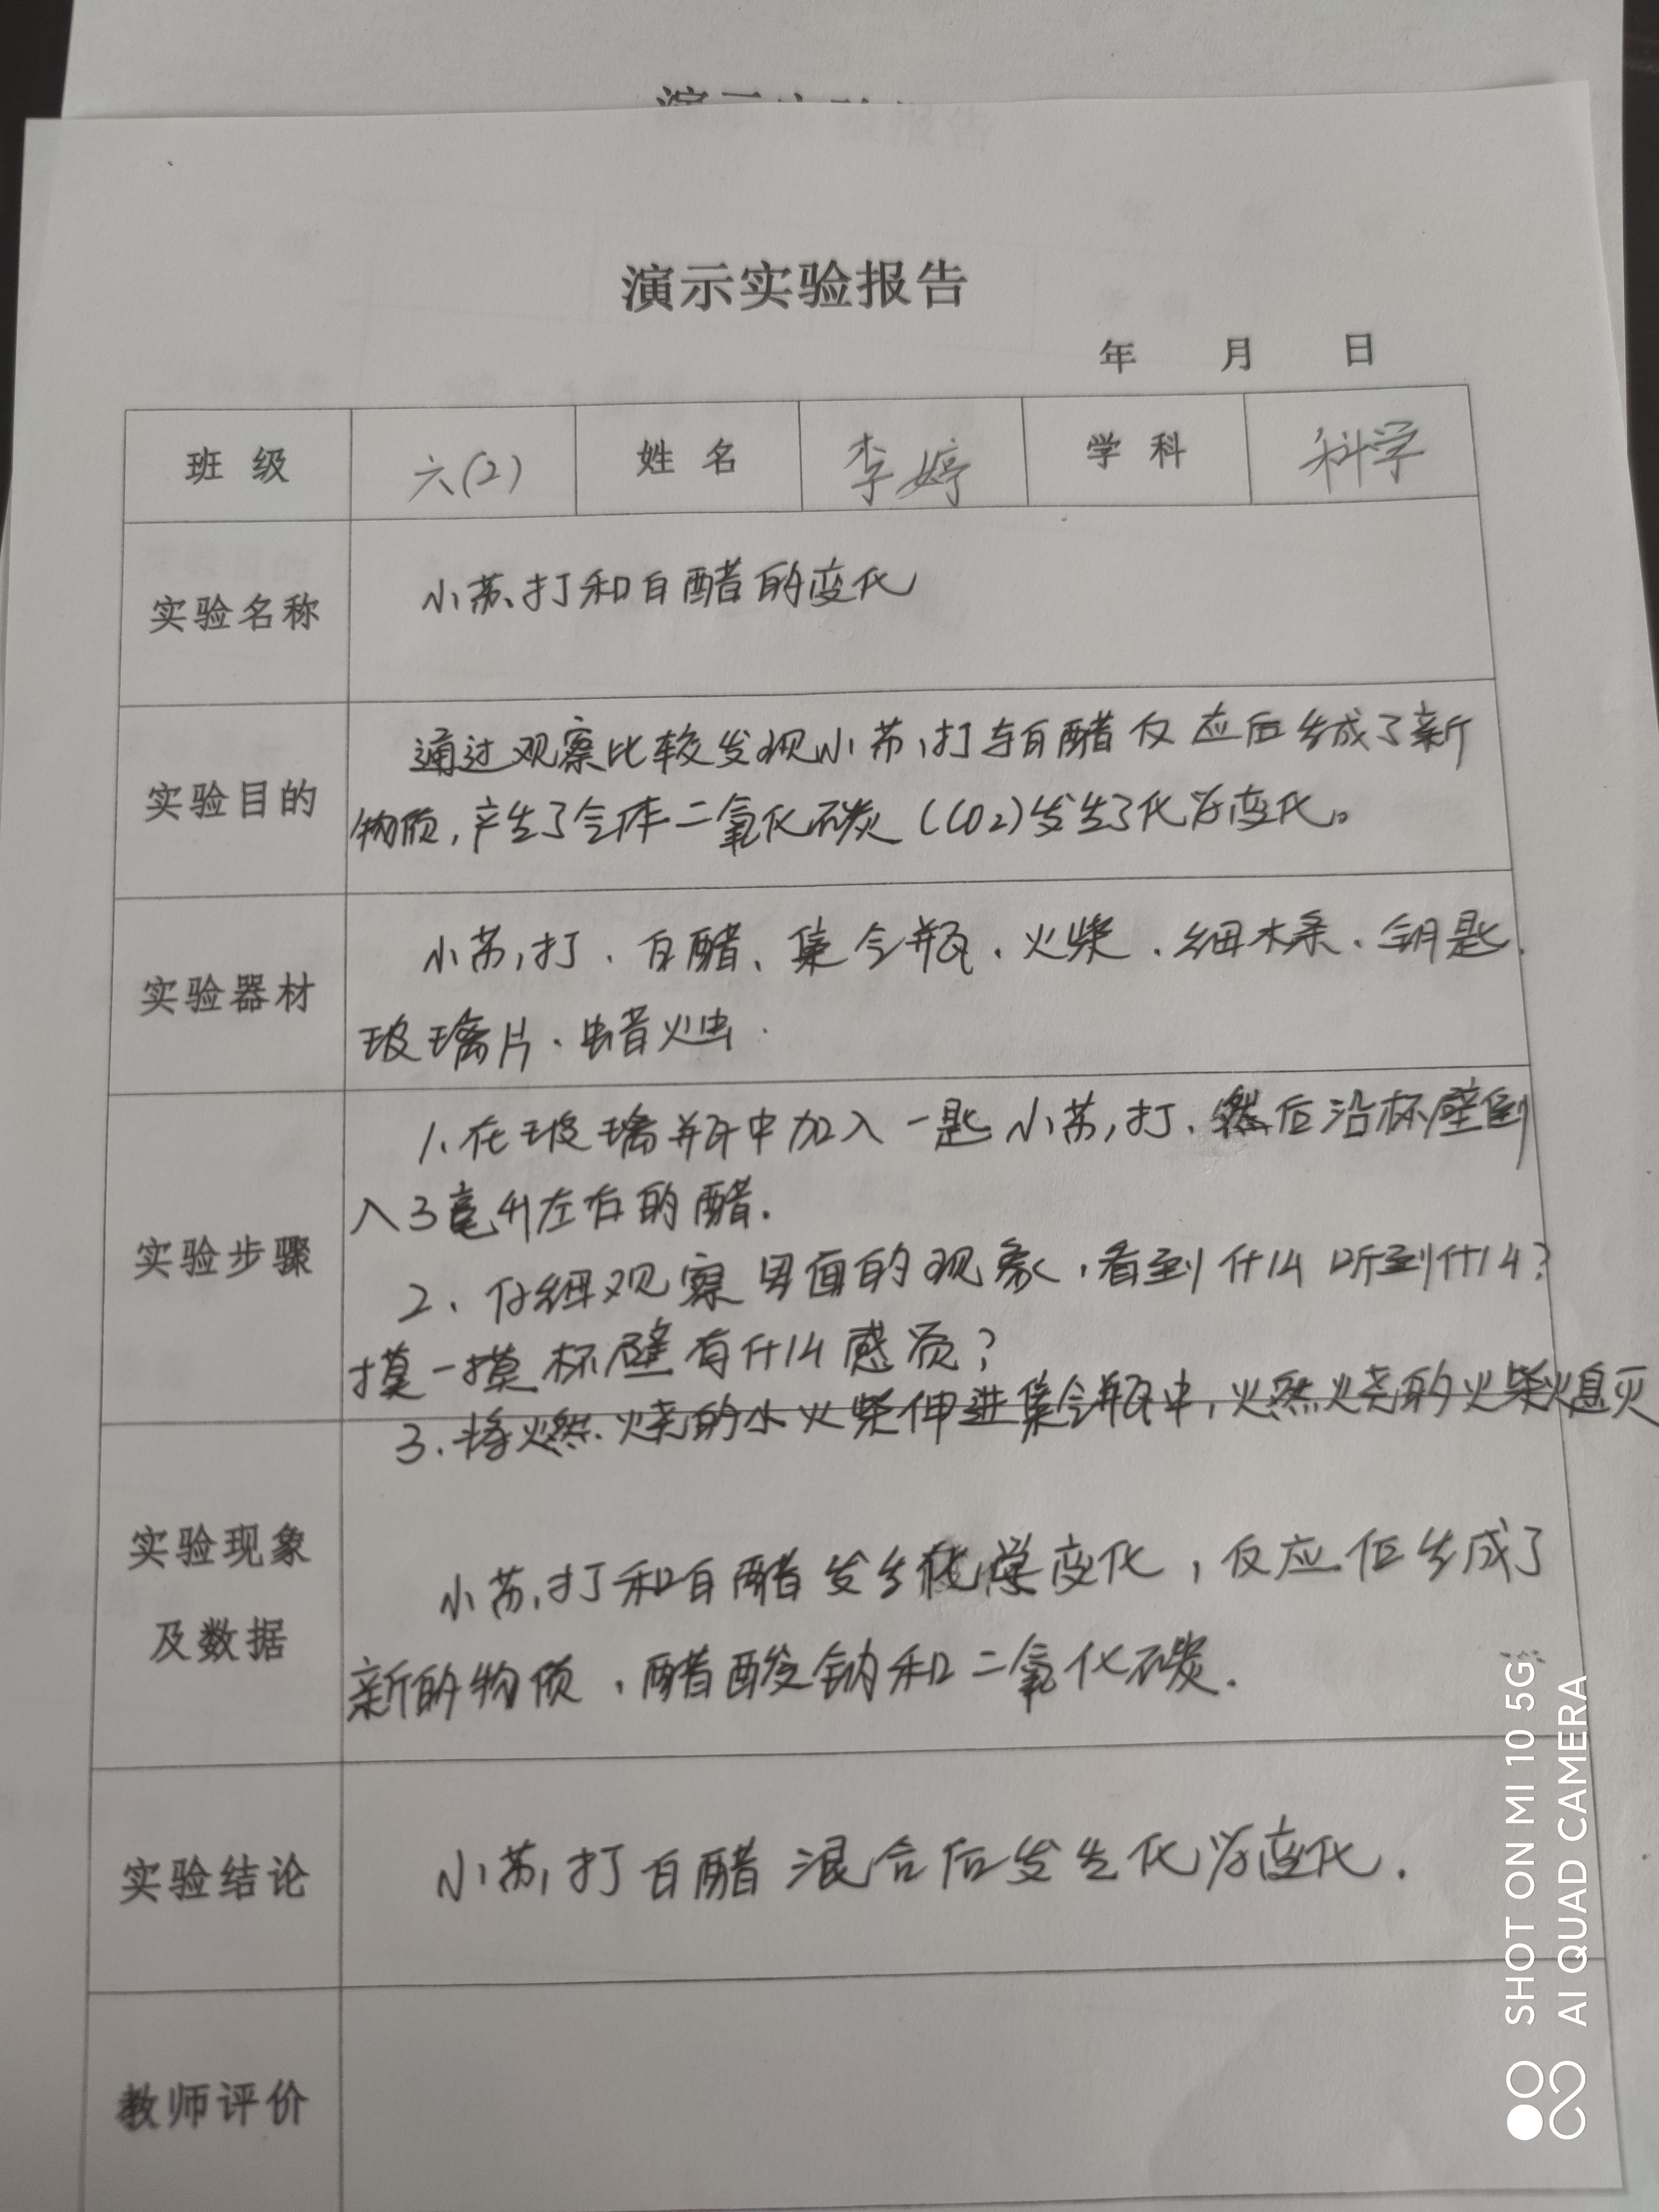 演示实验报告
年 月 日
班 级 六(2) 姓 名 李婷 学 科 科学
实验名称 小苏打和白醋的变化
实验目的 通过观察比较发现小苏打与白醋反应后生成了新
物质,产生了气体二氧化碳(CO2)发生了化学变化。
实验器材 小苏打、白醋、集气瓶、火柴、细木条、钥匙、
玻璃片、蜡烛.
实验步骤 1.在玻璃瓶中加入一匙小苏打、然后沿杯壁倒
入3毫升左右的醋.
2、仔细观察里面的现象,看到什么听到什么?
摸一摸杯壁有什么感觉?
3.将燃烧的小火柴伸进集气瓶中,燃烧的火柴熄灭
实验现象
及数据
小苏打和白醋发生化学变化,反应后生成了
新的物质,醋酸钠和二氧化碳.
实验结论 小苏打白醋混合后发生化学变化.
教师评价
SHOT ON MI 10 5G
AI QUAD CAMERA